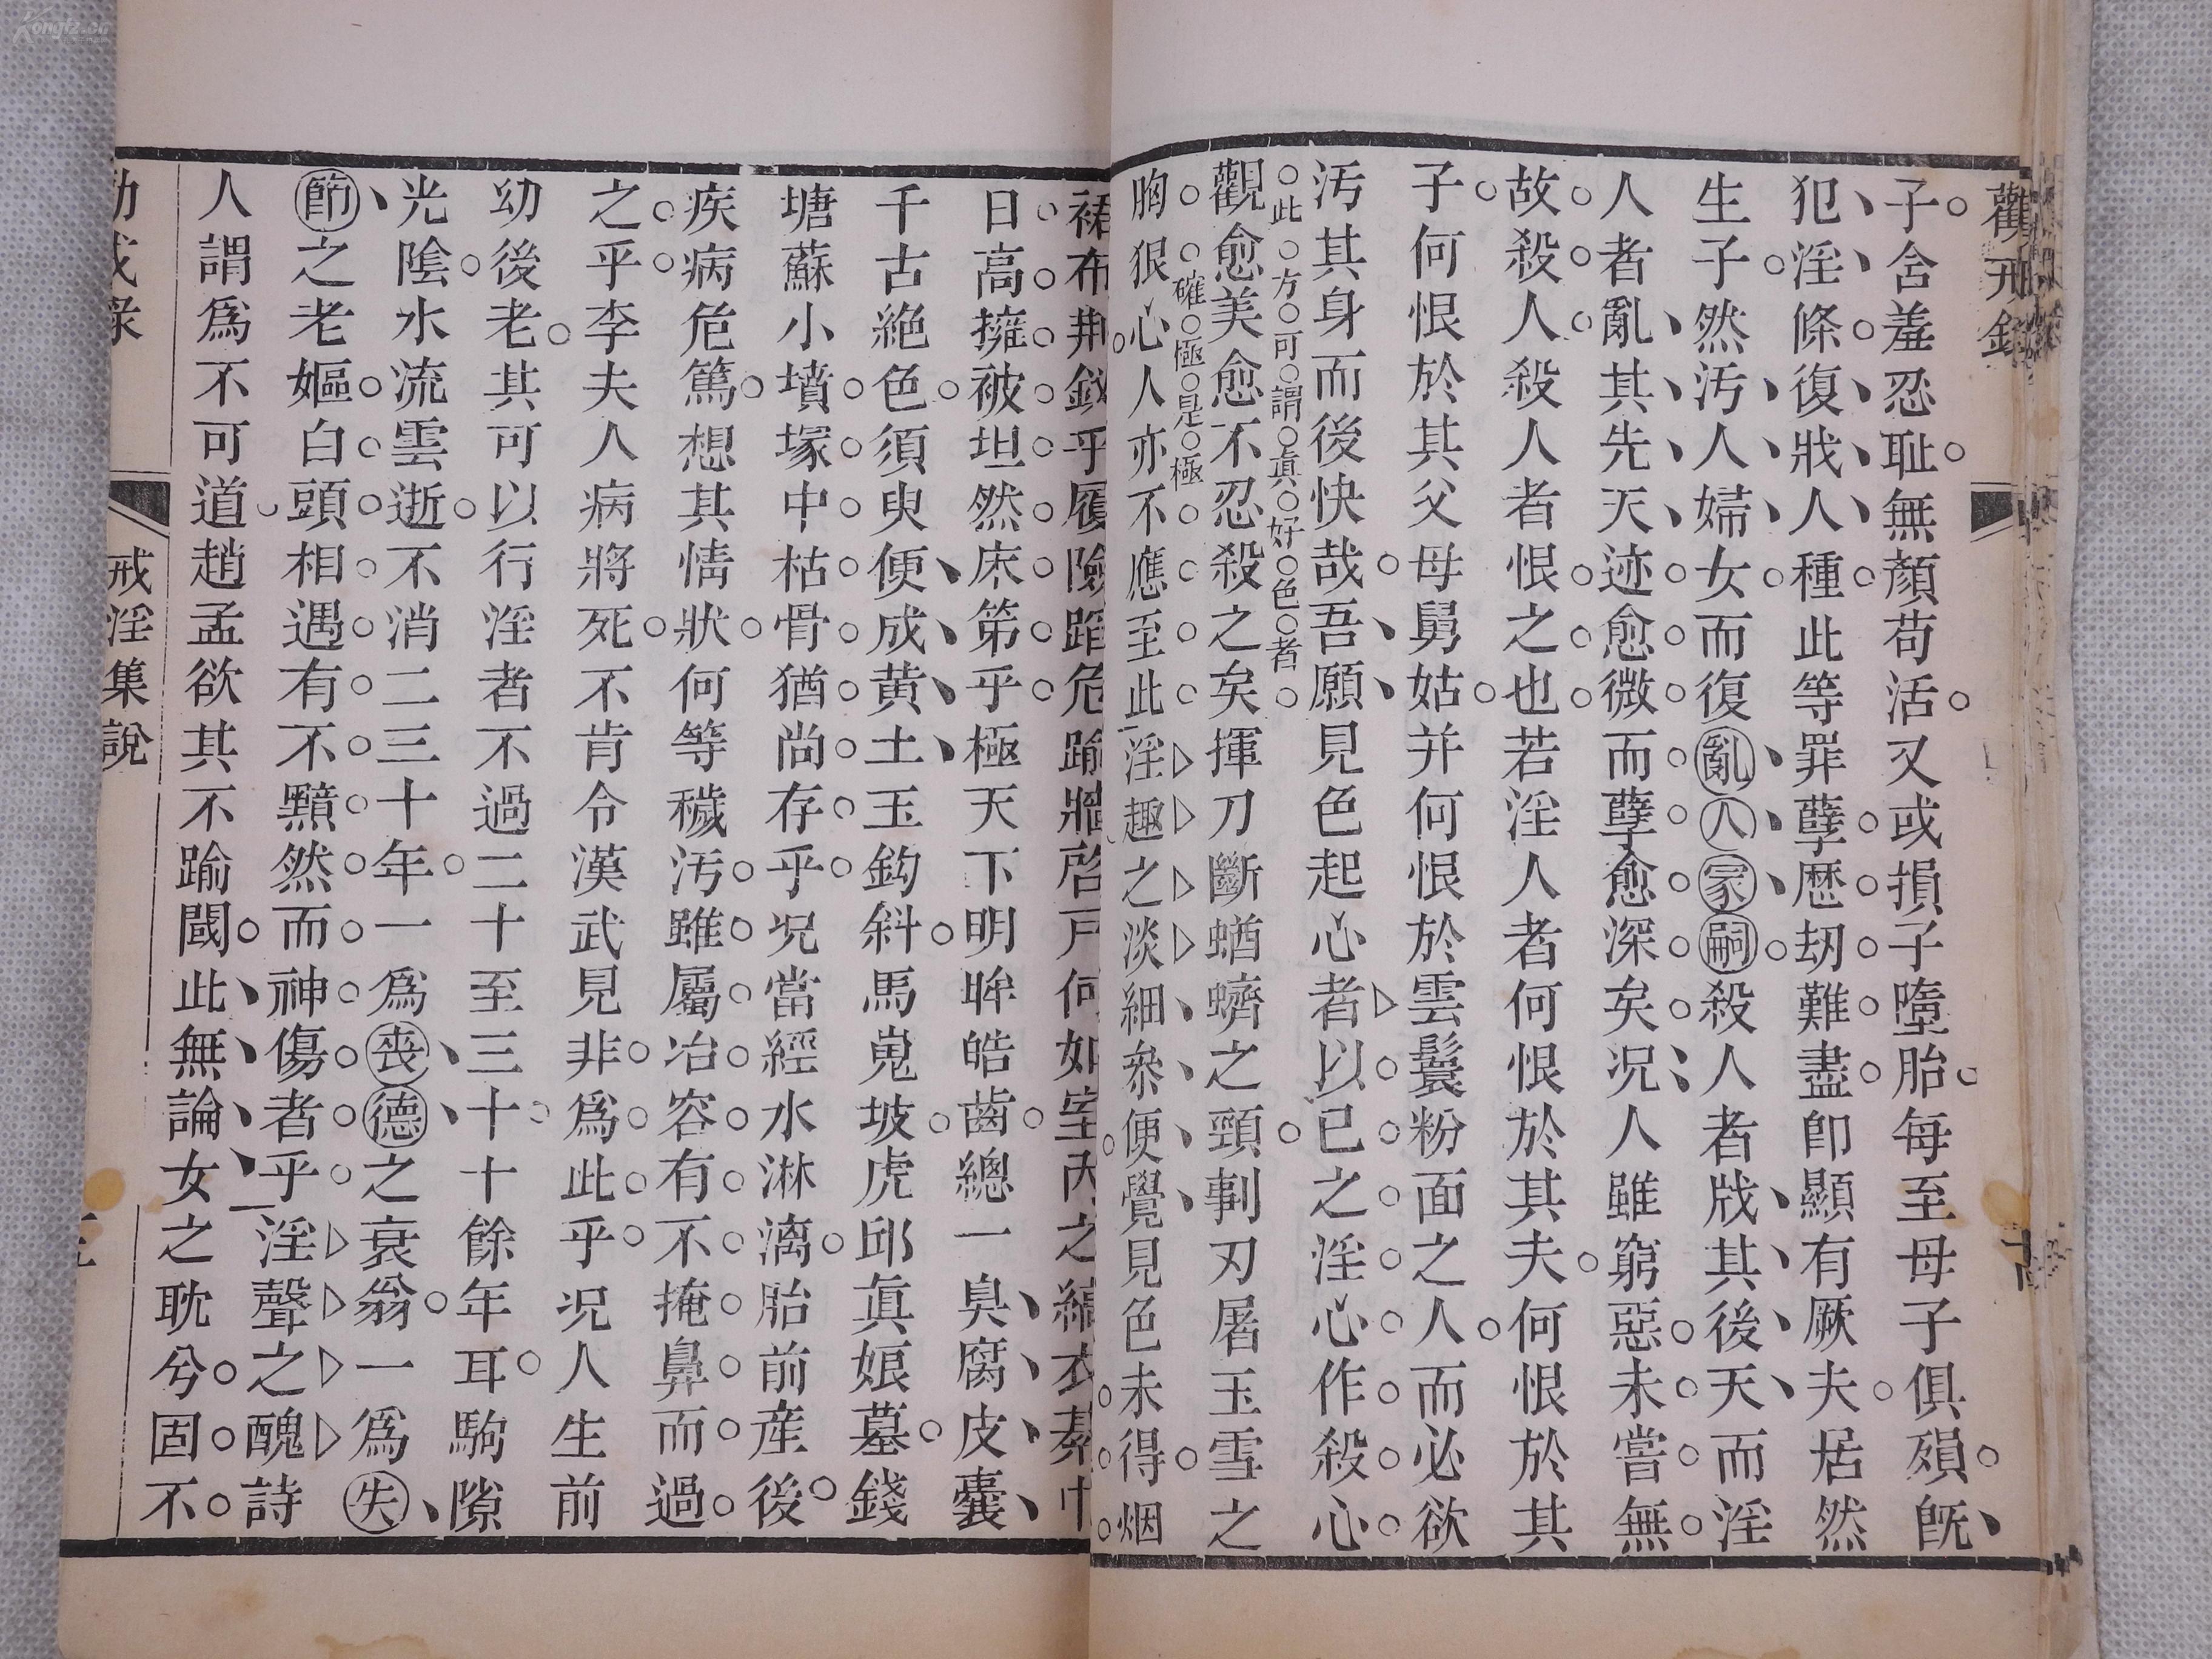 勸戒錄
子含羞忍耻無顏苟活又或損子墮胎每至母子俱殞旣
犯淫條復戕人種此等罪孽歷刧難盡卽顯有厥夫居然
生子然汚人婦女而復亂人家嗣殺人者戕其後天而淫
人者亂其先天迹愈微而孽愈深矣况人雖窮惡未嘗無
故殺人殺人者恨之也若淫人者何恨於其夫何恨於其
子何恨於其父母舅姑并何恨於雲鬟粉面之人而必欲
汚其身而後快哉吾願見色起心者以已之淫心作殺心
此方可謂眞好色者
觀愈美愈不忍殺之矣揮刀斷蝤蠐之頸剚刃屠玉雪之
確極是極
胸狠心人亦不應至此淫趣之淡細叅便覺見色未得烟
裙布荆釵乎履險蹈危踰牆啓戶何如室內之縞衣綦巾
日高擁被坦然床第乎極天下明眸皓齒總一臭腐皮囊
千古絶色須臾便成黄土玉鈎斜馬嵬坡虎邱眞娘墓錢
塘蘇小墳塚中枯骨猶尚存乎况當經水淋漓胎前產後
疾病危篤想其情狀何等穢汚雖屬冶容有不掩鼻而過
之乎李夫人病將死不肯令漢武見非爲此乎况人生前
幼後老其可以行淫者不過二十至三十十餘年耳駒隙
光陰水流雲逝不消二三十年一爲喪德之衰翁一爲失
節之老嫗白頭相遇有不黯然而神傷者乎淫聲之醜詩
人謂爲不可道趙孟欲其不踰閾此無論女之耽兮固不
戒淫集說